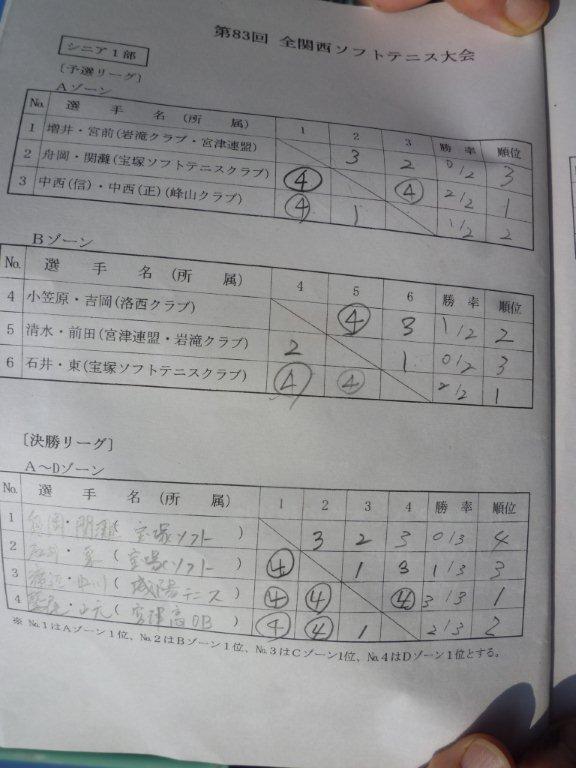 第83回 全関西ソフトテニス大会
シニア1部
[予選リーグ]
Aゾーン
No. 選手名(所属) 1 2 3 勝率 順位
1 増井・宮前(岩滝クラブ・宮津連盟) 3 2 0/2 3
2 舟岡・関灘(宝塚ソフトテニスクラブ) ④ ④ 2/2 1
3 中西(信)・中西(正)(峰山クラブ) ④ 1 1/2 2
Bゾーン
No. 選手名(所属) 4 5 6 勝率 順位
4 小笠原・吉岡(洛西クラブ) ④ 3 1/2 2
5 清水・前田(宮津連盟・岩滝クラブ) 2 1 0/2 3
6 石井・東(宝塚ソフトテニスクラブ) ④ ④ 2/2 1
[決勝リーグ]
A〜Dゾーン
No. 選手名(所属) 1 2 3 4 勝率 順位
1 舟岡・関灘(宝塚ソフト) 3 2 3 0/3 4
2 石井・東(宝塚ソフト) ④ 1 3 1/3 3
3 渡辺・(城陽テニス) ④ ④ ④ 3/3 1
4 (宮津高OB) ④ ④ 1 2/3 2
※ No.1はAゾーン1位、No.2はBゾーン1位、No.3はCゾーン1位、No.4はDゾーン1位とする。